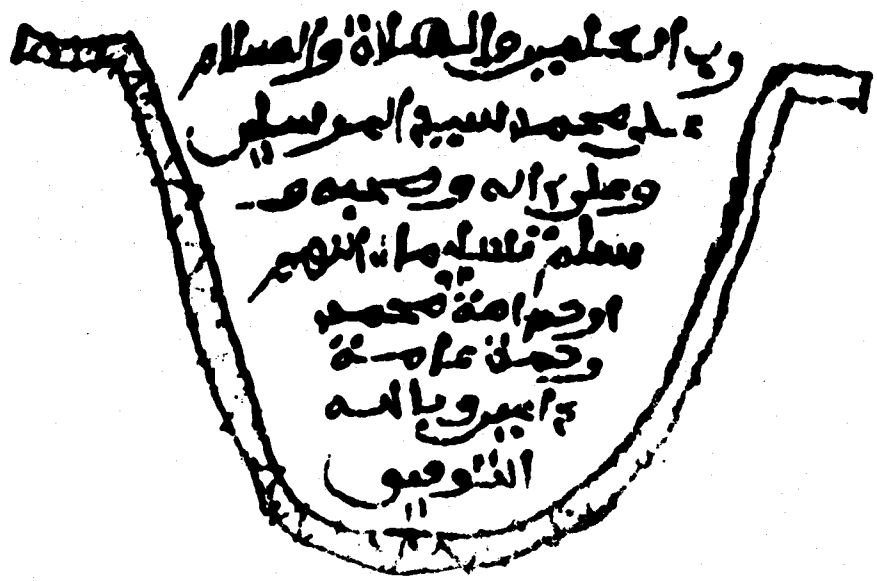 رب العلمين والصلاة والسلام
على محمد سيد المرسلين
وعلى اله وصحبه و
سلم تسليما اللهم
ارحم امة محمد
رحمة عامة
امين وبالله
التوفيق